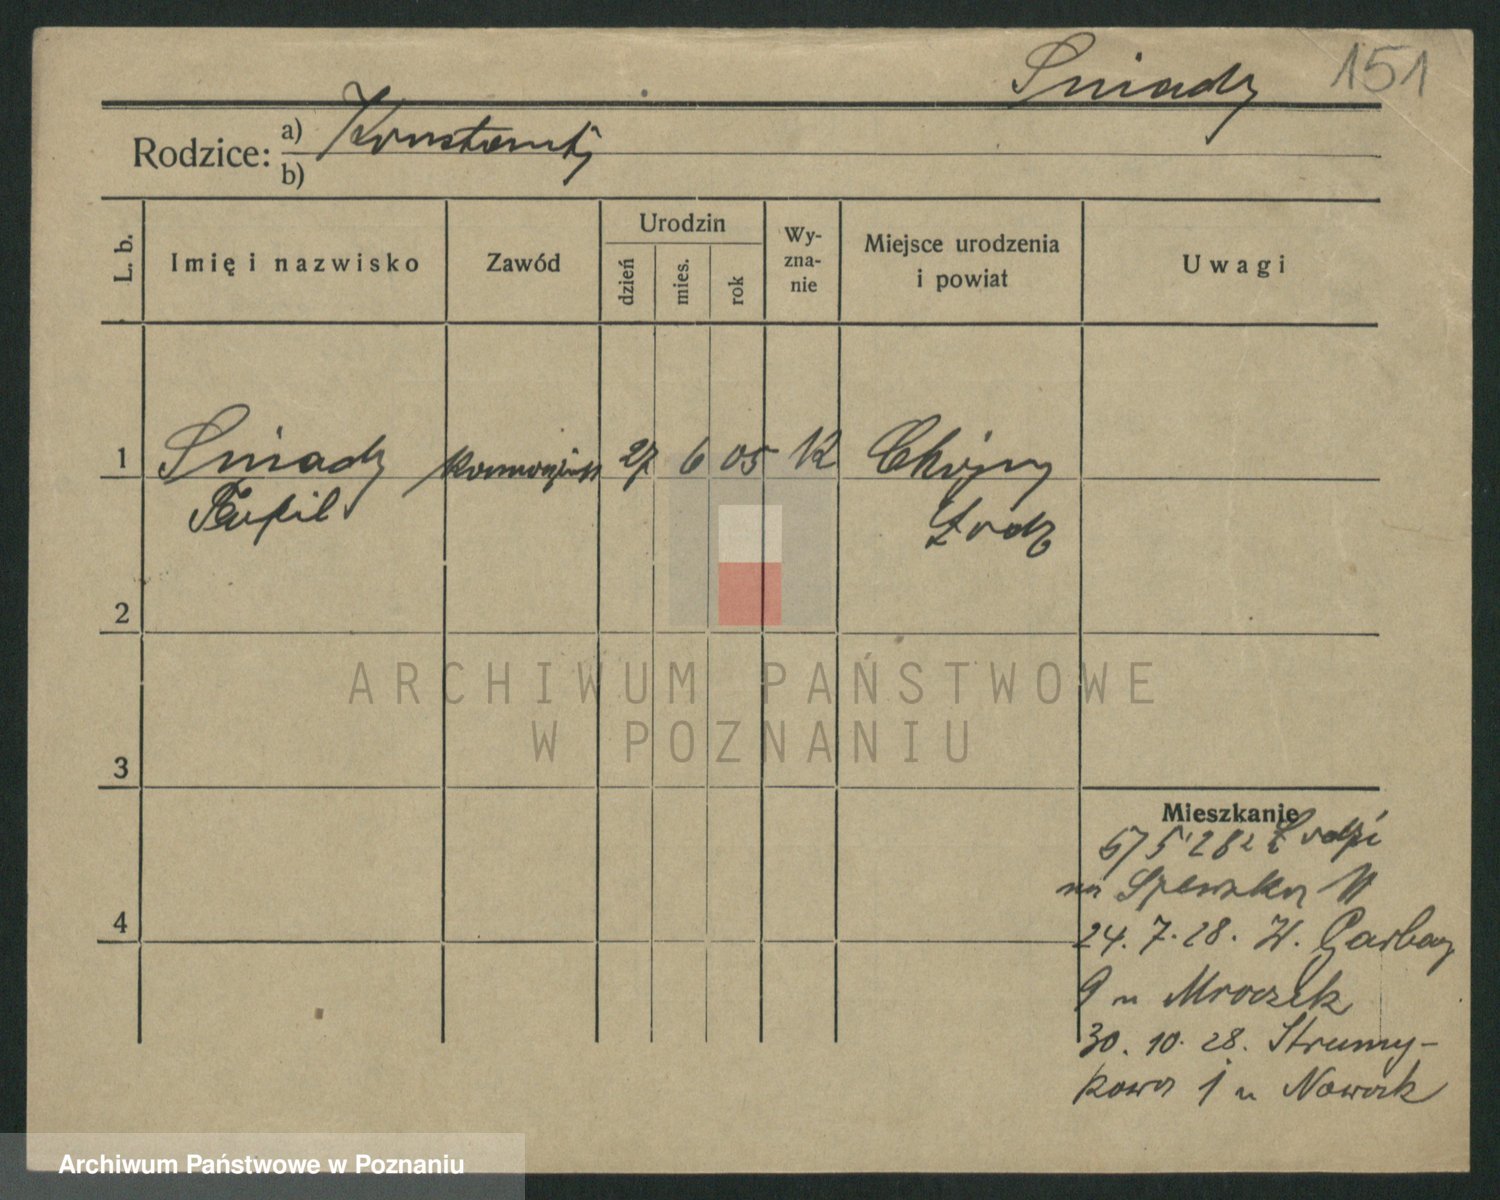 Śniady 151
Rodzice: a) Konstanty
b)
L. b. Imię i nazwisko Zawód Urodzin dzień mies. rok Wy-zna-nie Miejsce urodzenia i powiat Uwagi
1 Śniady 27 6 05 K Chojny
Łodz
2
ARCHIWUM PAŃSTWOWE
W POZNANIU
3
Mieszkanie
5 28 z Łodzi
na
24. 7. 28. W. Garbary
9 u Mroczek
4
30. 10. 28. Strumy-
kowa 1 u Nowak
Archiwum Państwowe w Poznaniu